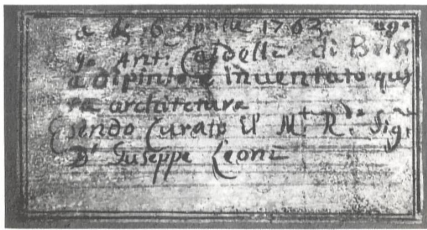 a dì 6 Aprile 1763
Ant. Cardelli di
a dipinto e inventato que
ra architetura
Esendo Curato El M.t R.do Sig.re
D. Guseppe Leoni